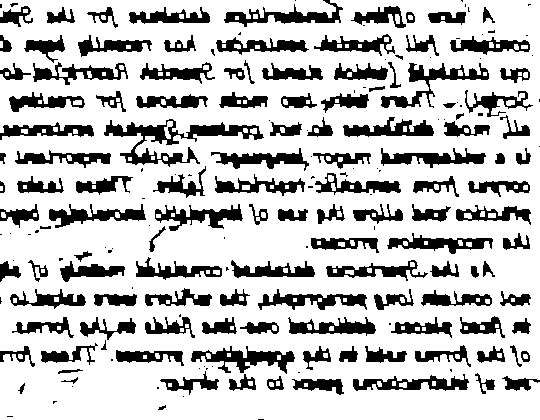 A new offline handwritten database for the Spa
contains full Spanish sentences, has recently been d
cus database (which stands for Spanish Restricted-do
Script). There were two main reasons for creating
all, most databases do not contain Spanish sentences,
is a widespread major language. Another important r
corpus from semantic-restricted tasks. These tasks
practice and allow the use of linguistic knowledge beyo
the recognition process.
As the Spartacus database consisted mainly of
not contain long paragraphs, the writers were asked to
in fixed places: dedicated one-line fields in the forms.
of the forms used in the acquisition process. These for
set of instructions given to the writer.